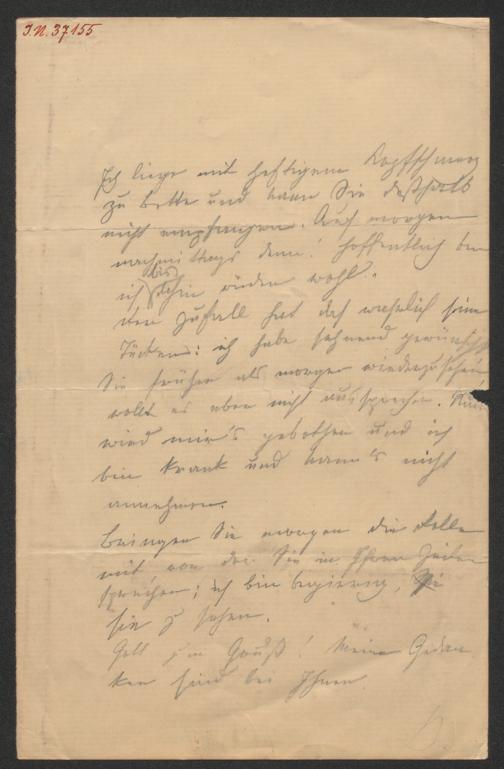 I.N. 37155
Ich liege mit heftigem Kopfschmerz
zu Bette und kann Sie deßhalb
nicht empfangen. Auch morgen
nachmittags denn! Hoffentlich bin
ich bis dahin wieder wohl.
Der Zufall hat doch wahrlich seine
Tücken: ich habe sehnend gewünscht
Sie früher als morgen wiederzusehen,
wollt es aber nicht aussprechen. Nun
wird mir's geboten und ich
bin krank und kann's nicht
annehmen.
Bringen Sie morgen die Rolle
mit von der Sie in Ihren Zeilen
sprechen; ich bin begierig,
sie zu sehen.
Gott zum Gruß! Meine Gedan
ken sind bei Ihnen